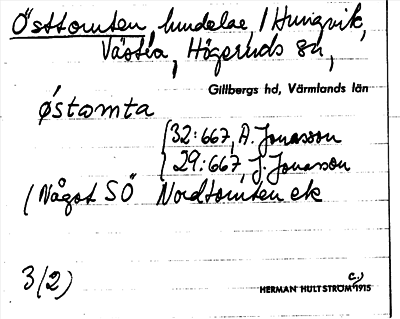 Östtomten, hundelae, / Hungvik,
Västra, Högeruds sn,
Gillbergs hd, Värmlands län
ø̀stomta
32:667, A. Jonasson
29:667, J. Jonasson
(Något SÖ Nordtomten ek
3/2)
C.)
HERMAN HULTSTRÖM 1915